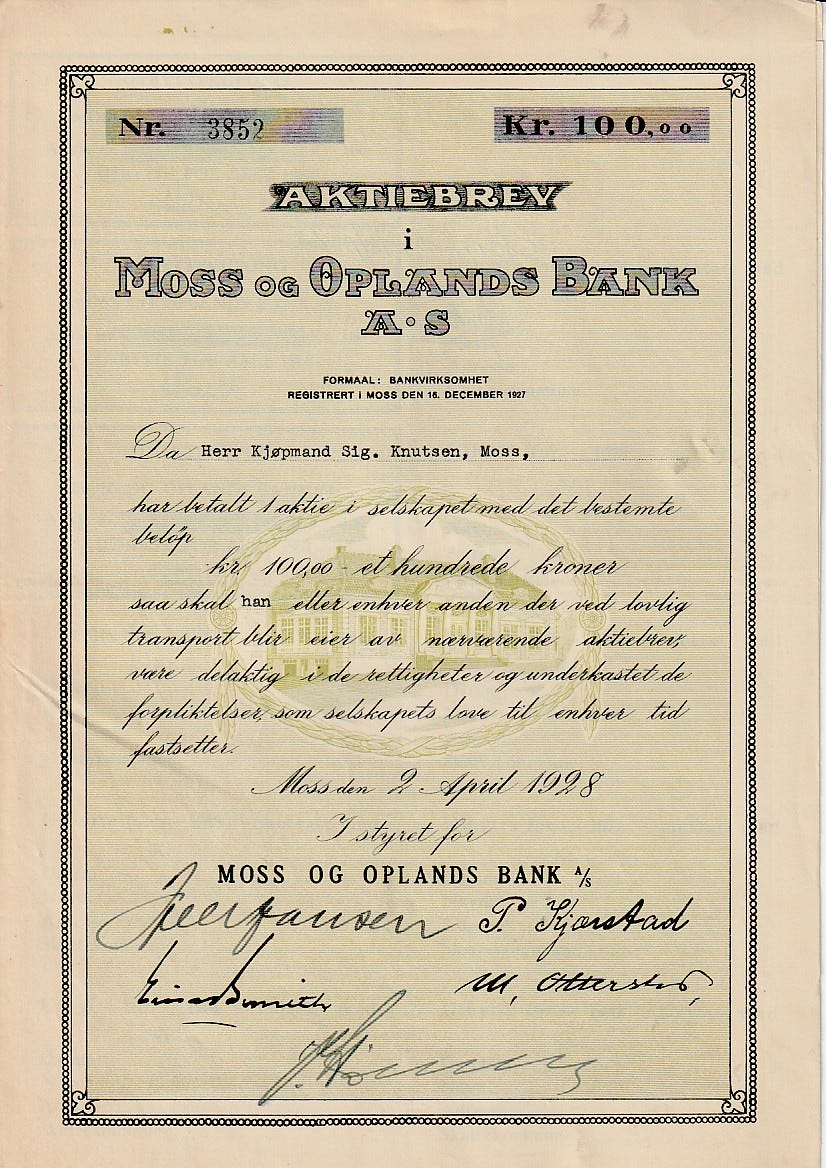 Nr. 3852
Kr. 100,00
AKTIEBREV
i
MOSS OG OPLANDS BANK
A·S
FORMAAL: BANKVIRKSOMHET
REGISTRERT I MOSS DEN 16. DECEMBER 1927
Da Herr Kjøpmand Sig. Knutsen, Moss,
har betalt 1 aktie i selskapet med det bestemte
beløp
kr. 100,00 - et hundrede kroner
saa skal han eller enhver anden der ved lovlig
transport blir eier av nærværende aktiebrev,
være delaktig i de rettigheter og underkastet de
forpliktelser, som selskapets love til enhver tid
fastsetter.
Moss den 2 April 1928
I styret for
MOSS OG OPLANDS BANK A/S
P. Kjærstad